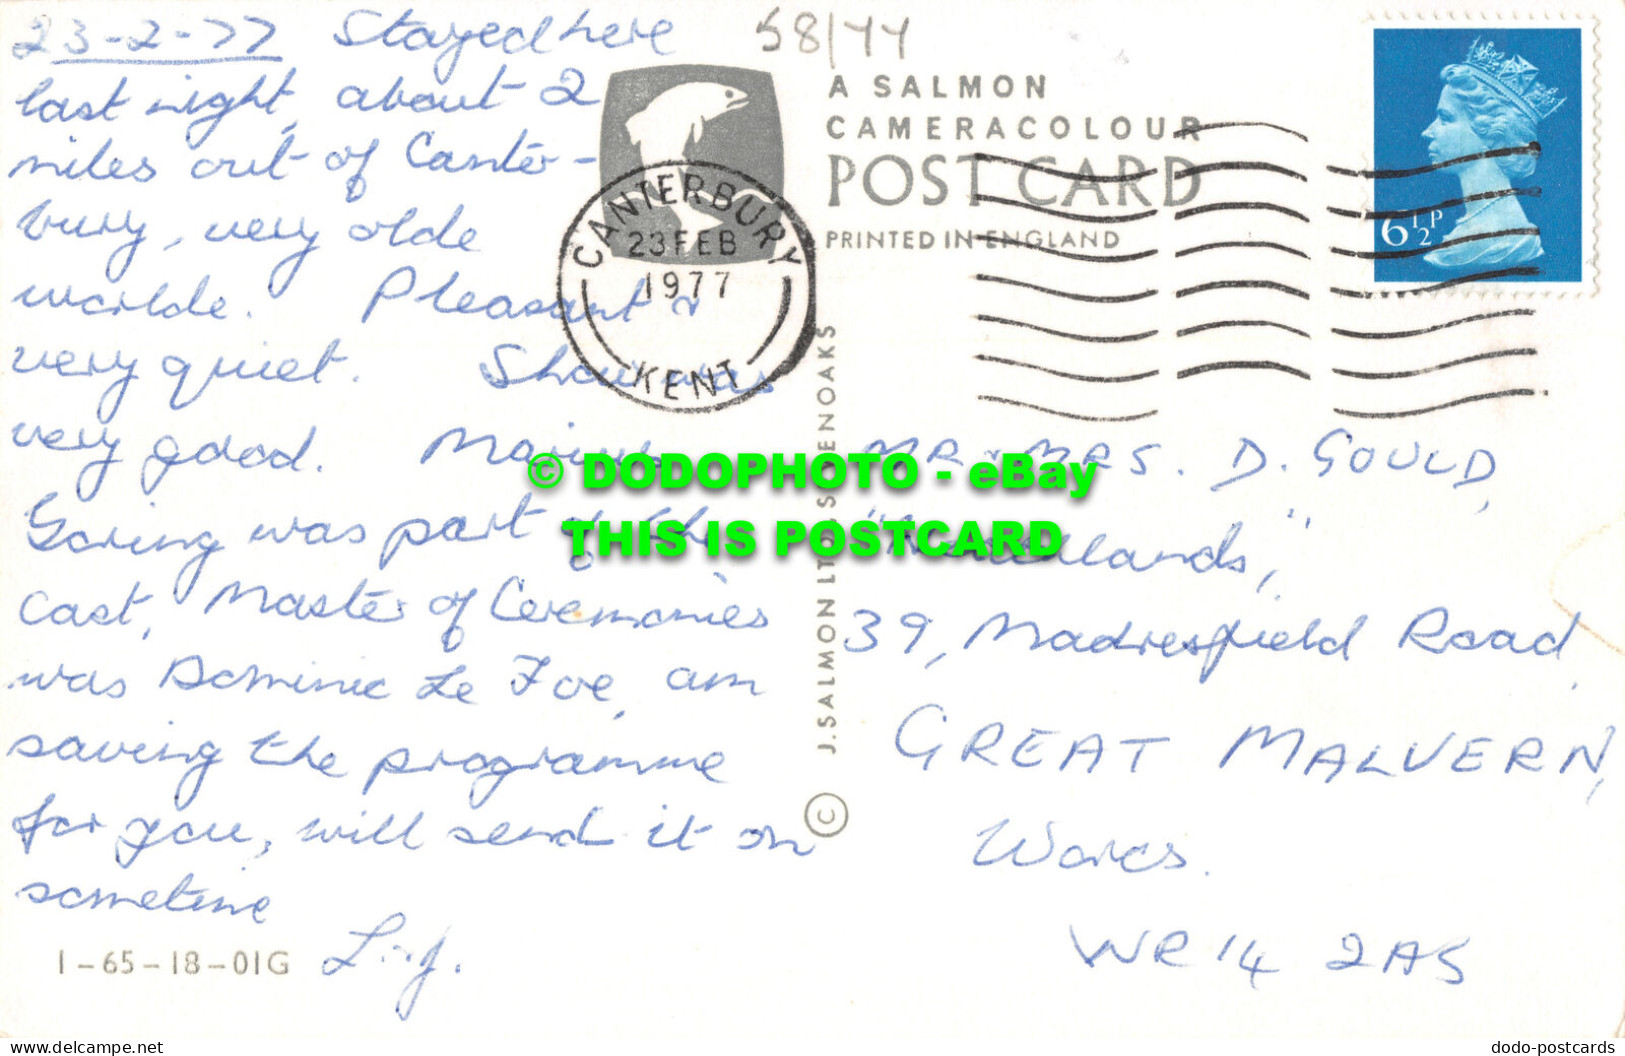 23-2-77 Stayed here
last night, about 2
miles out of Canter-
bury, very olde
worlde. Pleasant &
very quiet. Show was
very good. Marius
Goring was part of the
cast, Master of Ceremonies
was Dominic Le Foe, am
saving the programme
for you, will send it on
sometime
L-J.
1-65-18-01G
58/44
A SALMON
CAMERACOLOUR
POST CARD
PRINTED IN ENGLAND
CANTERBURY
23 FEB
1977
KENT
6½P
J. SALMON LTD., SEVENOAKS
©
MR & MRS. D. GOULD,
39, Madresfield Road,
GREAT MALVERN,
Worcs.
WR14 2AS
© DODOPHOTO - eBay
THIS IS POSTCARD
www.delcampe.net
dodo-postcards